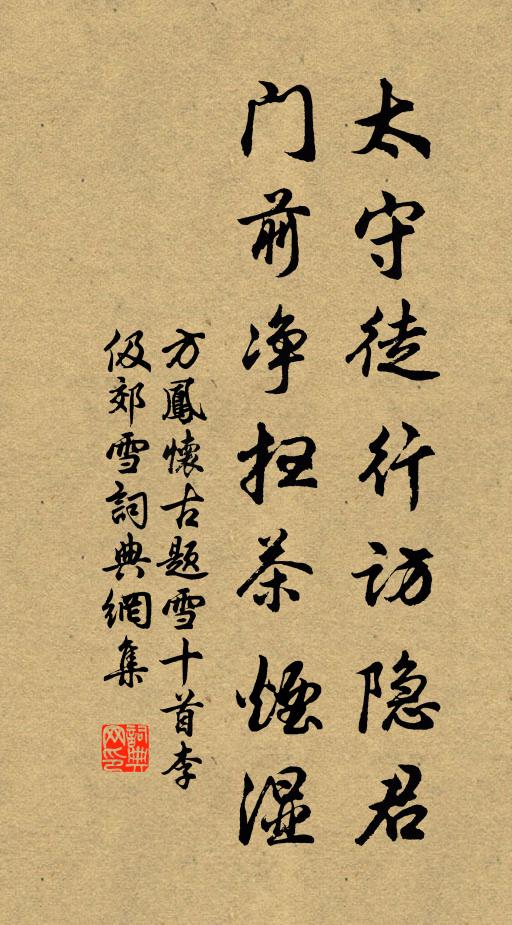 太守徒行访隐君
门前净扫茶烟湿
方鳳懷古题雪十首李
伋郊雪詞典網集
詞典网印